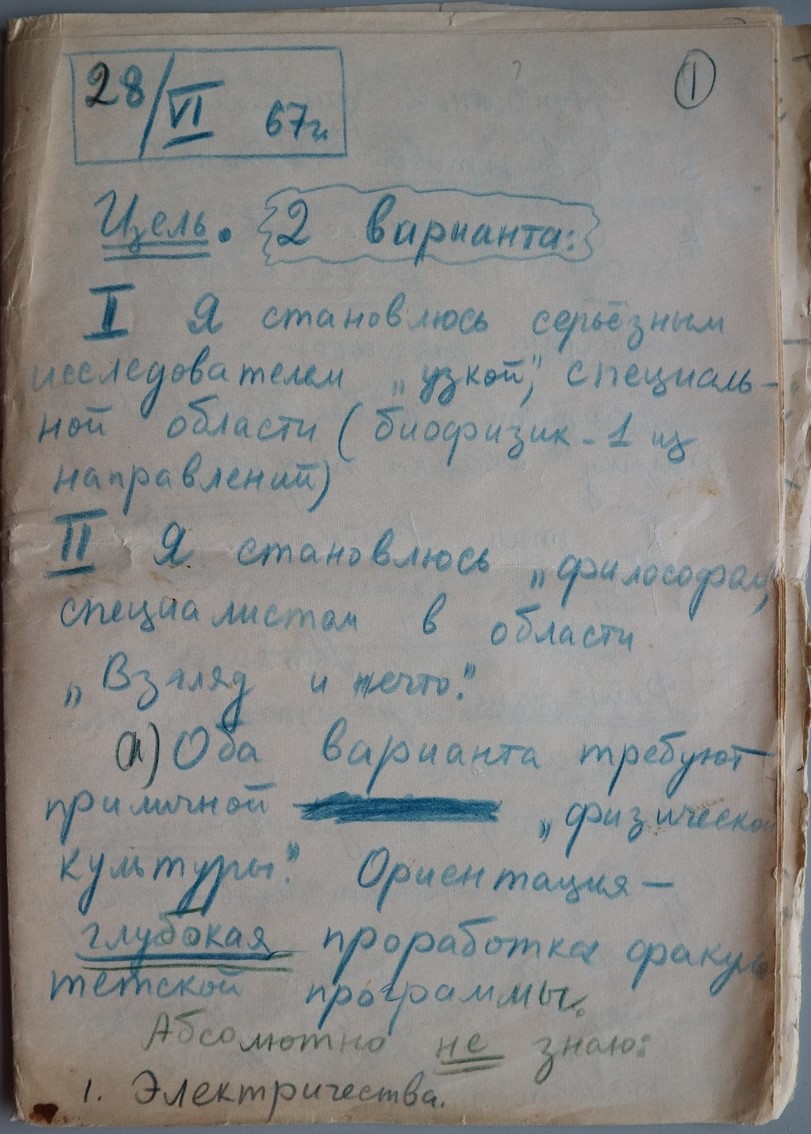 28/VI 67г.
1
Цель. 2 варианта:
I Я становлюсь серьёзным
исследователем „узкой", специаль-
ной области (биофизик - 1 из
направлений)
II Я становлюсь „философом",
специалистом в области
„Взгляд и нечто".
а) Оба варианта требуют
приличной „физической
культуры". Ориентация —
глубокая проработка факуль
тетской программы.
Абсолютно не знаю:
1. Электричества.